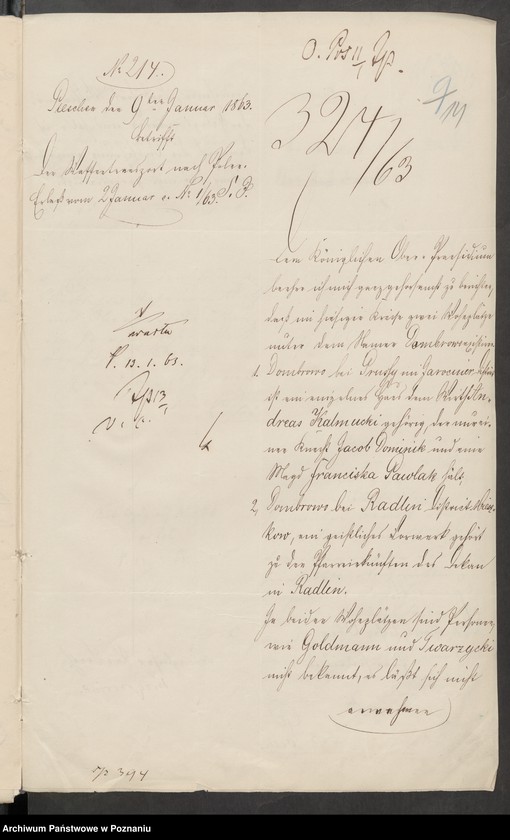 O. Pos 11/1
No 214.
Pleschen den 9ten Januar 1863.
betrifft
den Waffentransport nach Polen.
Erlaß vom 2 Januar c. No 1/63. S. P.
324/63
dem Königlichen Ober-Praesidium
beehre ich mich ganz gehorsamst zu berichten,
daß im hiesigen Kreise zwei Wohnplätze
unter dem Namen Dombrowo existiren
1. Dombrowo bei im Jarociner
ist ein einzelnes Haus dem An-
dreas Kalmucki gehörig der nur ei-
nen Knecht Jacob Dominik und eine
Magd Franciska Pawlak hält
2, Dombrowo bei Radlin District
kow, ein geistliches Vorwerk gehört
zu den des Dekan
in Radlin.
In beiden Wohnplätzen sind Personen
wie Goldmann und Twarzycki
nicht bekannt, es läßt sich nicht
annehmen
P. 13. 1. 63.
13/1
394
Archiwum Państwowe w Poznaniu